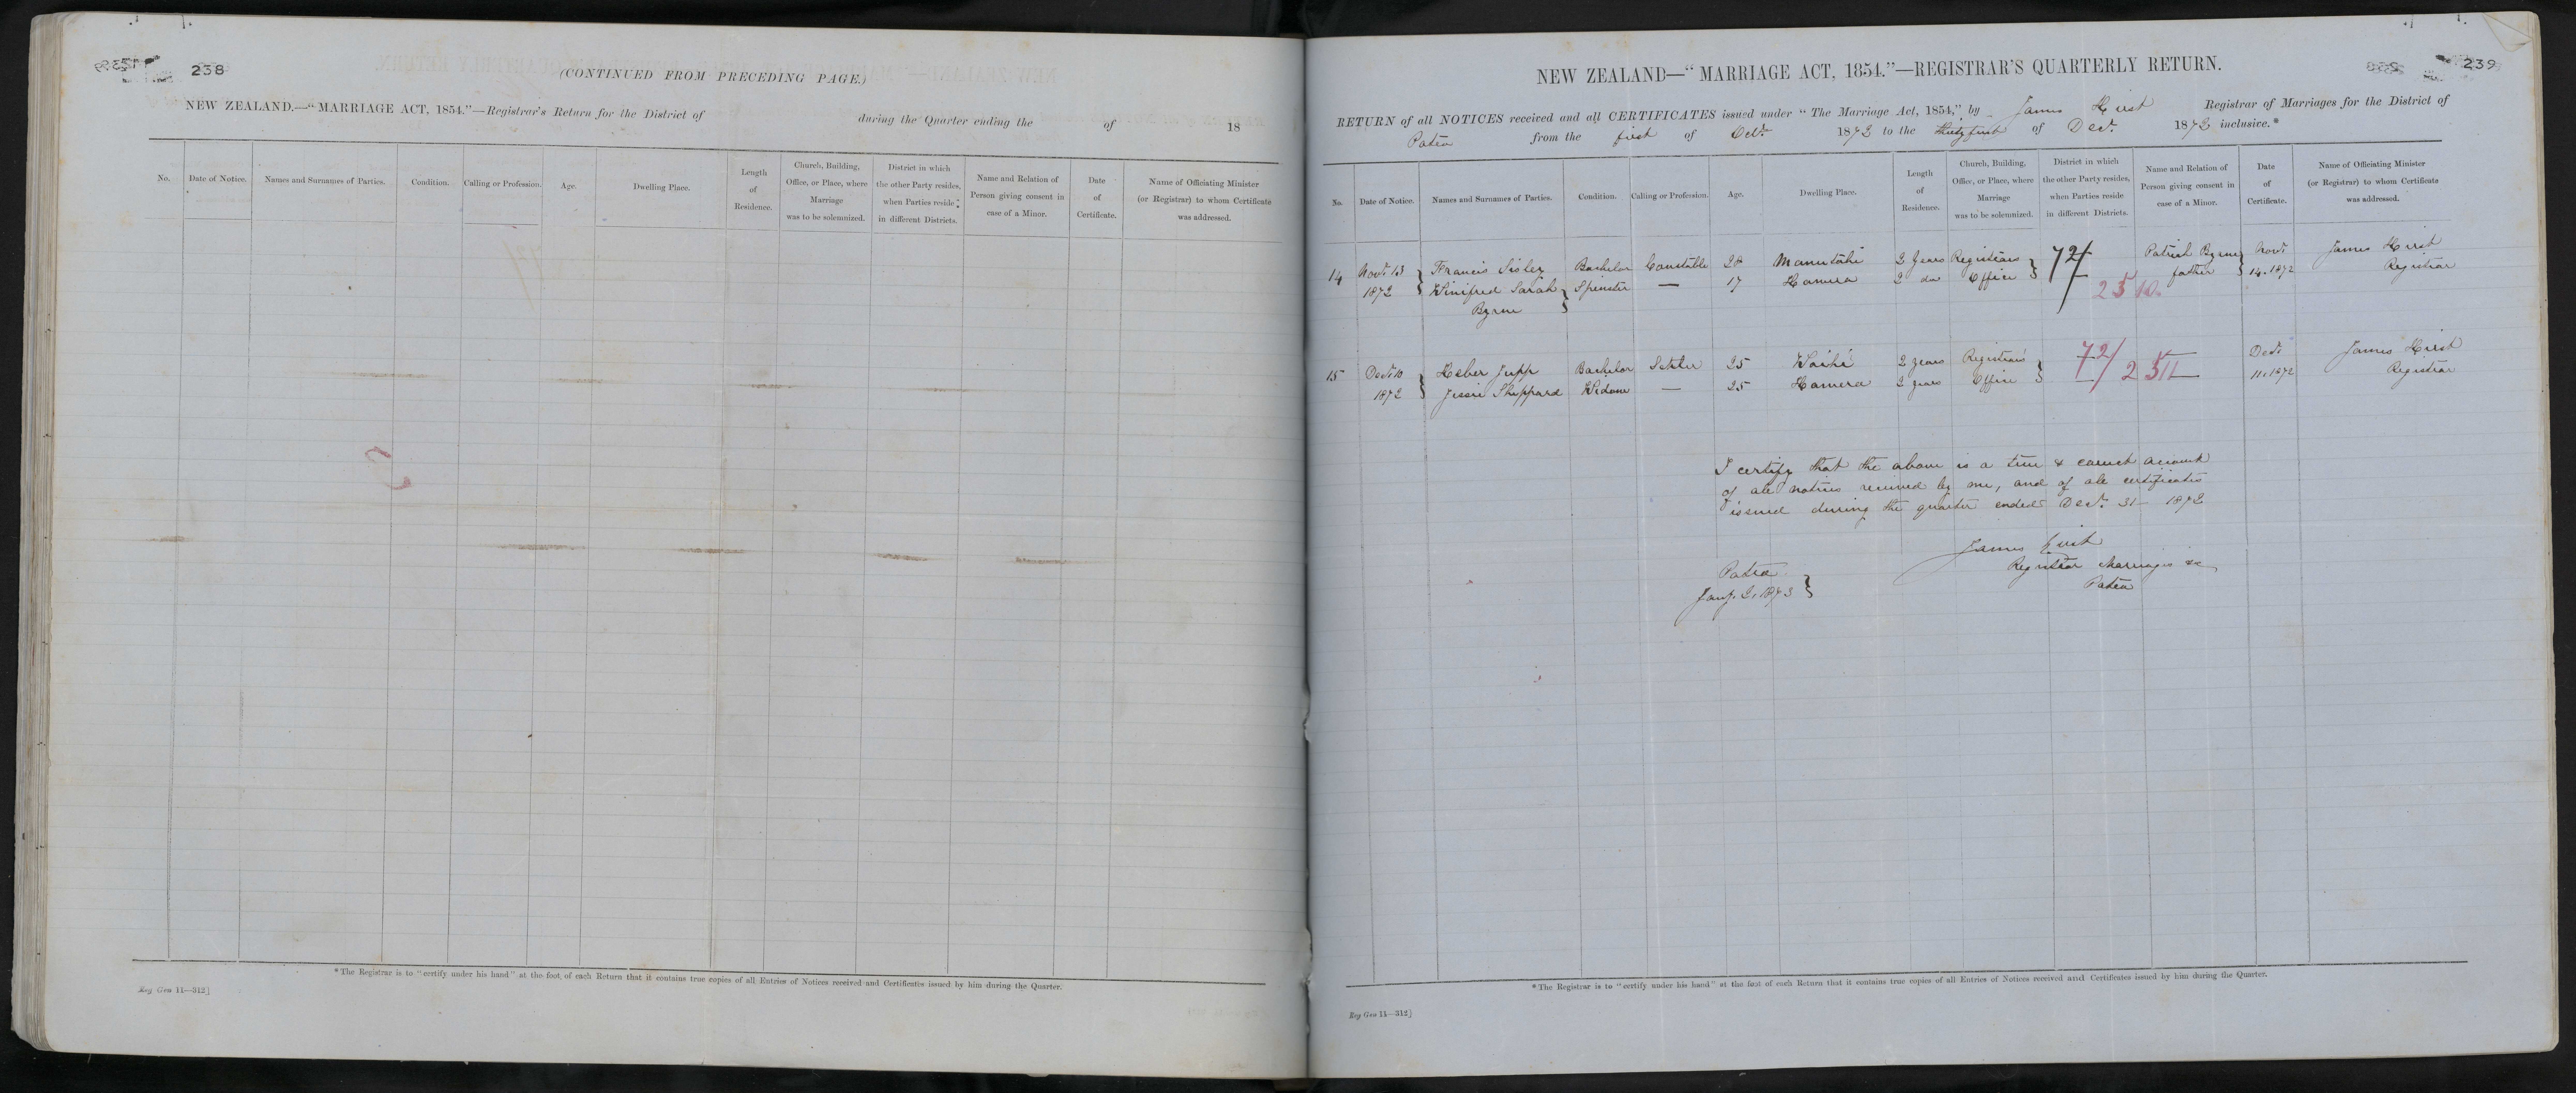 238
(CONTINUED FROM PRECEDING PAGE.)
NEW ZEALAND.—"MARRIAGE ACT, 1854."—Registrar's Return for the District of during the Quarter ending the of 18
No. Date of Notice. Names and Surnames of Parties. Condition. Calling or Profession. Age. Dwelling Place. Length of Residence. Church, Building, Office, or Place, where Marriage was to be solemnized. District in which the other Party resides, when Parties reside in different Districts. Name and Relation of Person giving consent in case of a Minor. Date of Certificate. Name of Officiating Minister (or Registrar) to whom Certificate was addressed.
*The Registrar is to "certify under his hand" at the foot of each Return that it contains true copies of all Entries of Notices received and Certificates issued by him during the Quarter.
Reg Gen 11—312]
239
NEW ZEALAND—"MARRIAGE ACT, 1854."—REGISTRAR'S QUARTERLY RETURN.
RETURN of all NOTICES received and all CERTIFICATES issued under "The Marriage Act, 1854," by James Hirst Registrar of Marriages for the District of
Patea from the first of Octr 1872 to the thirty first of Decr. 1872 inclusive.*
No. Date of Notice. Names and Surnames of Parties. Condition. Calling or Profession. Age. Dwelling Place. Length of Residence. Church, Building, Office, or Place, where Marriage was to be solemnized. District in which the other Party resides, when Parties reside in different Districts. Name and Relation of Person giving consent in case of a Minor. Date of Certificate. Name of Officiating Minister (or Registrar) to whom Certificate was addressed.
14 Novr 13 Francis Sisley Bachelor Constable 28 Manutahi 2 Years Registrars 72/ Patrick Byrne Novr James Hirst
1872 Winifred Sarah Spinster — 17 Hawera 2 do Office — 2510 father 14. 1872 Registrar
Byrne
15 Decr 10 Heber Jupp Bachelor Settler 25 Waihi 2 years Registrars 72/ Decr James Hirst
1872 Jessie Sheppard Widow — 25 Hawera 2 years Office — 2511 — 11. 1872 Registrar
I certify that the above is a true & correct account
of all notices received by me, and of all certificates
issued during the quarter ended Decr. 31— 1872
James Hirst
Patea Registrar Marriages &c
Jany. 2, 1873 Patea
*The Registrar is to "certify under his hand" at the foot of each Return that it contains true copies of all Entries of Notices received and Certificates issued by him during the Quarter.
Reg Gen 11—312]